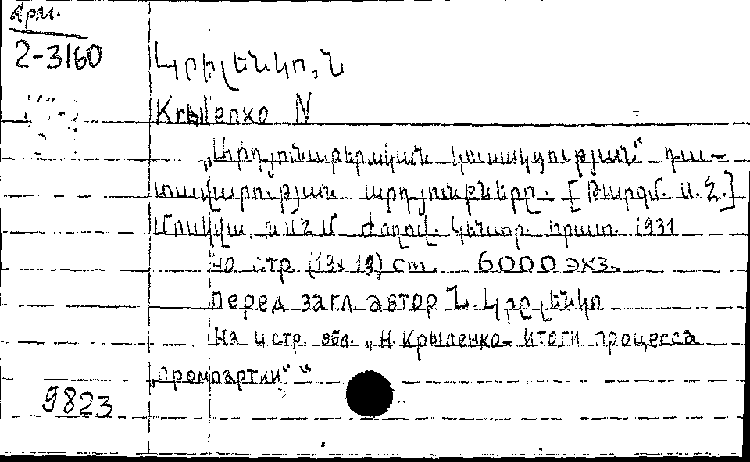 Арм.
2-3160
Կրիլենկո, Ն
Крыленко N
„Արդյունաբերական կուսակցության“ դա-
տավարության արդյունքները. [Թարգմ. Ս. Հ.]
Մոսկվա, ԽՍՀՄ Ժողով. կենտր. հրատ. 1931
40 стр. (13x19) cm. 6000 экз.
перед загл автор Ն. Կրըլենկո
На 4 стр. обл. „Н. Крыленко- Итоги процесса
„промпартии“ “
9823